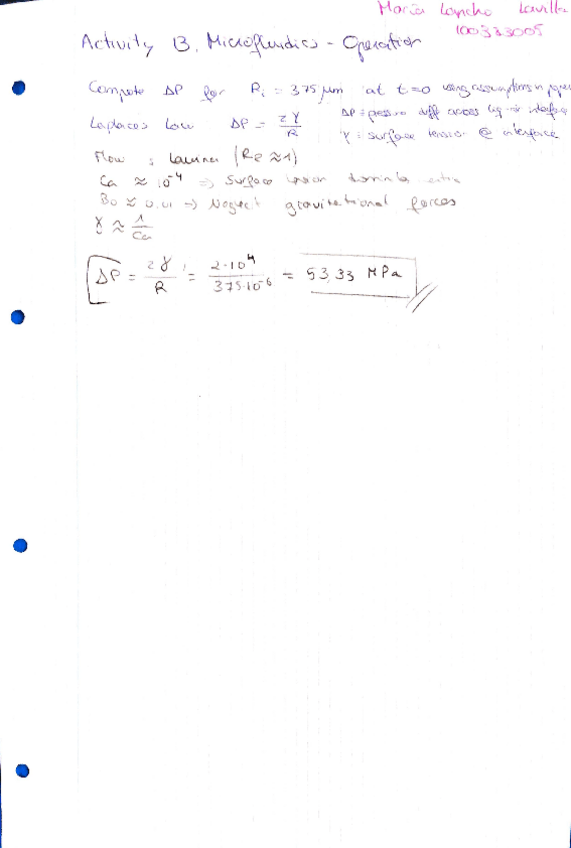 Maria Lancho Lavilla
100333005
Activity 13. Microfluidics - Operation
Compute ΔP for Ri = 375 µm at t=0 using assumptions in paper
Laplace's Law ΔP = 2γ/R
ΔP = pressure diff across liq-air interface
γ = surface tension @ interface
Flow : Laminar (Re ≈ 1)
Ca ≈ 10⁻⁴ => Surface tension dominates
Bo ≈ 0,01 => Neglect gravitational forces
γ ≈ 1/Ca
ΔP = 2γ/R = 2·10⁴/375·10⁻⁶ = 53,33 MPa